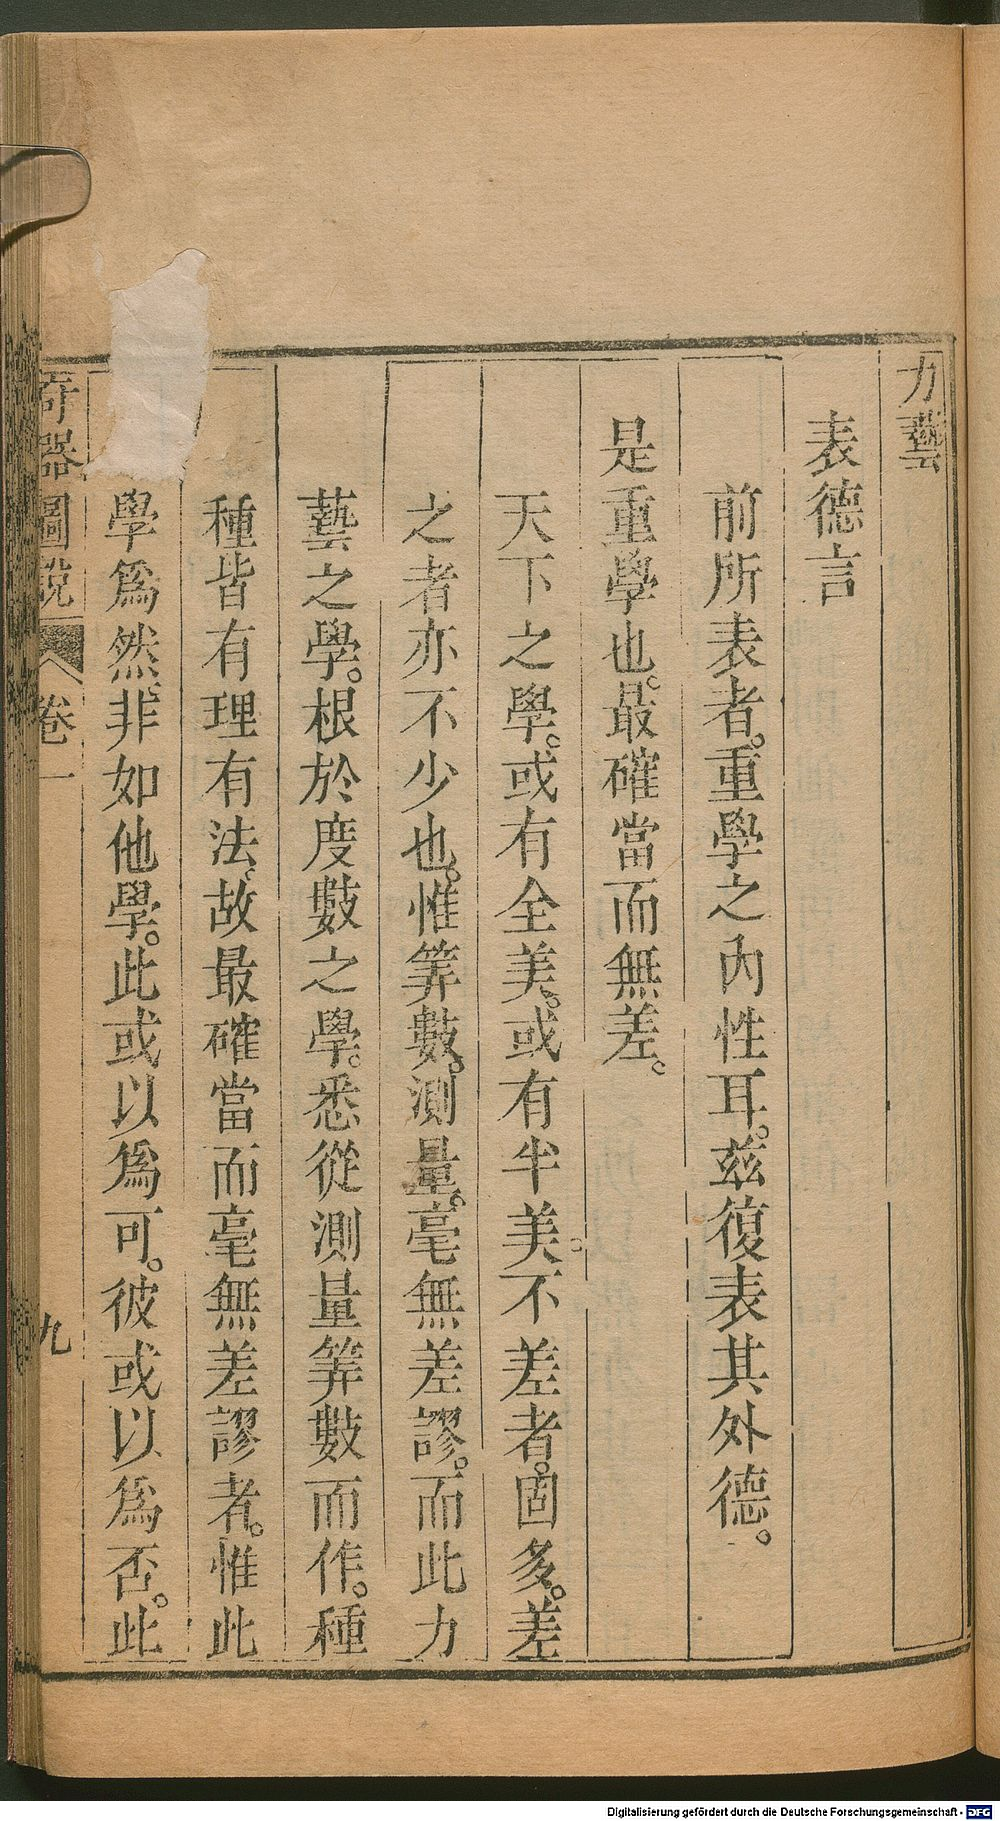 力藝
表德言
前所表者。重學之內性耳。茲復表其外德。
是重學也。最確當而無差。
天下之學。或有全美。或有半美。不差者。固多。差
之者亦不少也。惟筭數。測量。毫無差謬。而此力
藝之學。根於度數之學。悉從測量筭數而作。種
種皆有理有法。故最確當而毫無差謬者。惟此
學爲然。非如他學。此或以爲可。彼或以爲否。此
奇器圖說 卷一 九
Digitalisierung gefördert durch die Deutsche Forschungsgemeinschaft - DFG